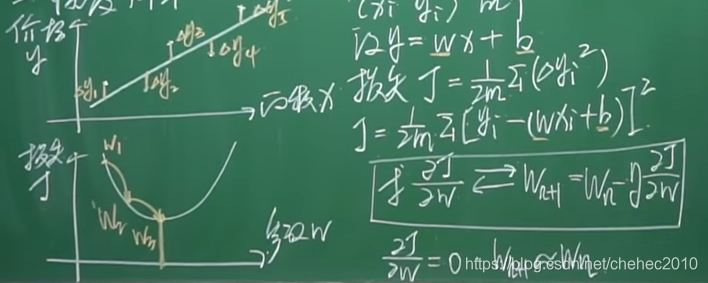 价格
y
Δy₁
Δy₂
Δy₃
Δy₄
Δy₅
面积x
损失
J
w₁
w₂
w₃
参数w
(xᵢ yᵢ) m
设y=wx+b
损失 J=1/2m Σ(Δyᵢ²)
J=1/2m Σ[yᵢ-(wxᵢ+b)]²
求 ∂J/∂w ⇌ wₙ₊₁=wₙ-η ∂J/∂w
∂J/∂w=0 wₙ₊₁≈wₙ
https://blog.csdn.net/chehec2010